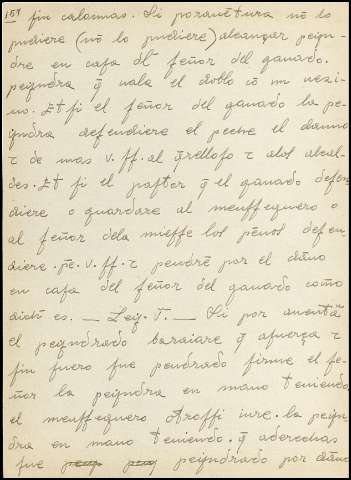 151 fin calonnas. Si poraventura no lo
pudiere (no lo pudiere) alcançar peyn-
dre en casa dl señor del ganado.
peyndra q̃ uala el doblo cõ su uezi-
no. Et si el señor del ganado la pe-
yndra defendiere el peche el danno
τ de mas v. ss. al q̃relloso τ alos alcal-
des. Et si el pastor q̃ el ganado defen
diere o guardare al messeguero o
al señor dela miesse los penos defen-
diere. pe. v. ss. τ. pendre por el dãno
en casa del señor del ganado como
dicho es. — Ley. T. — Si por auentura
el peyndrado baraiare q̃ afuerça τ
sin fuero fue pendrado firme el se-
ñor la peyndra en mano teniendo
el messeguero otrossi iure. la peyn-
dra en mano teniendo. q̃ aderechas
fue peyndrado por dãno